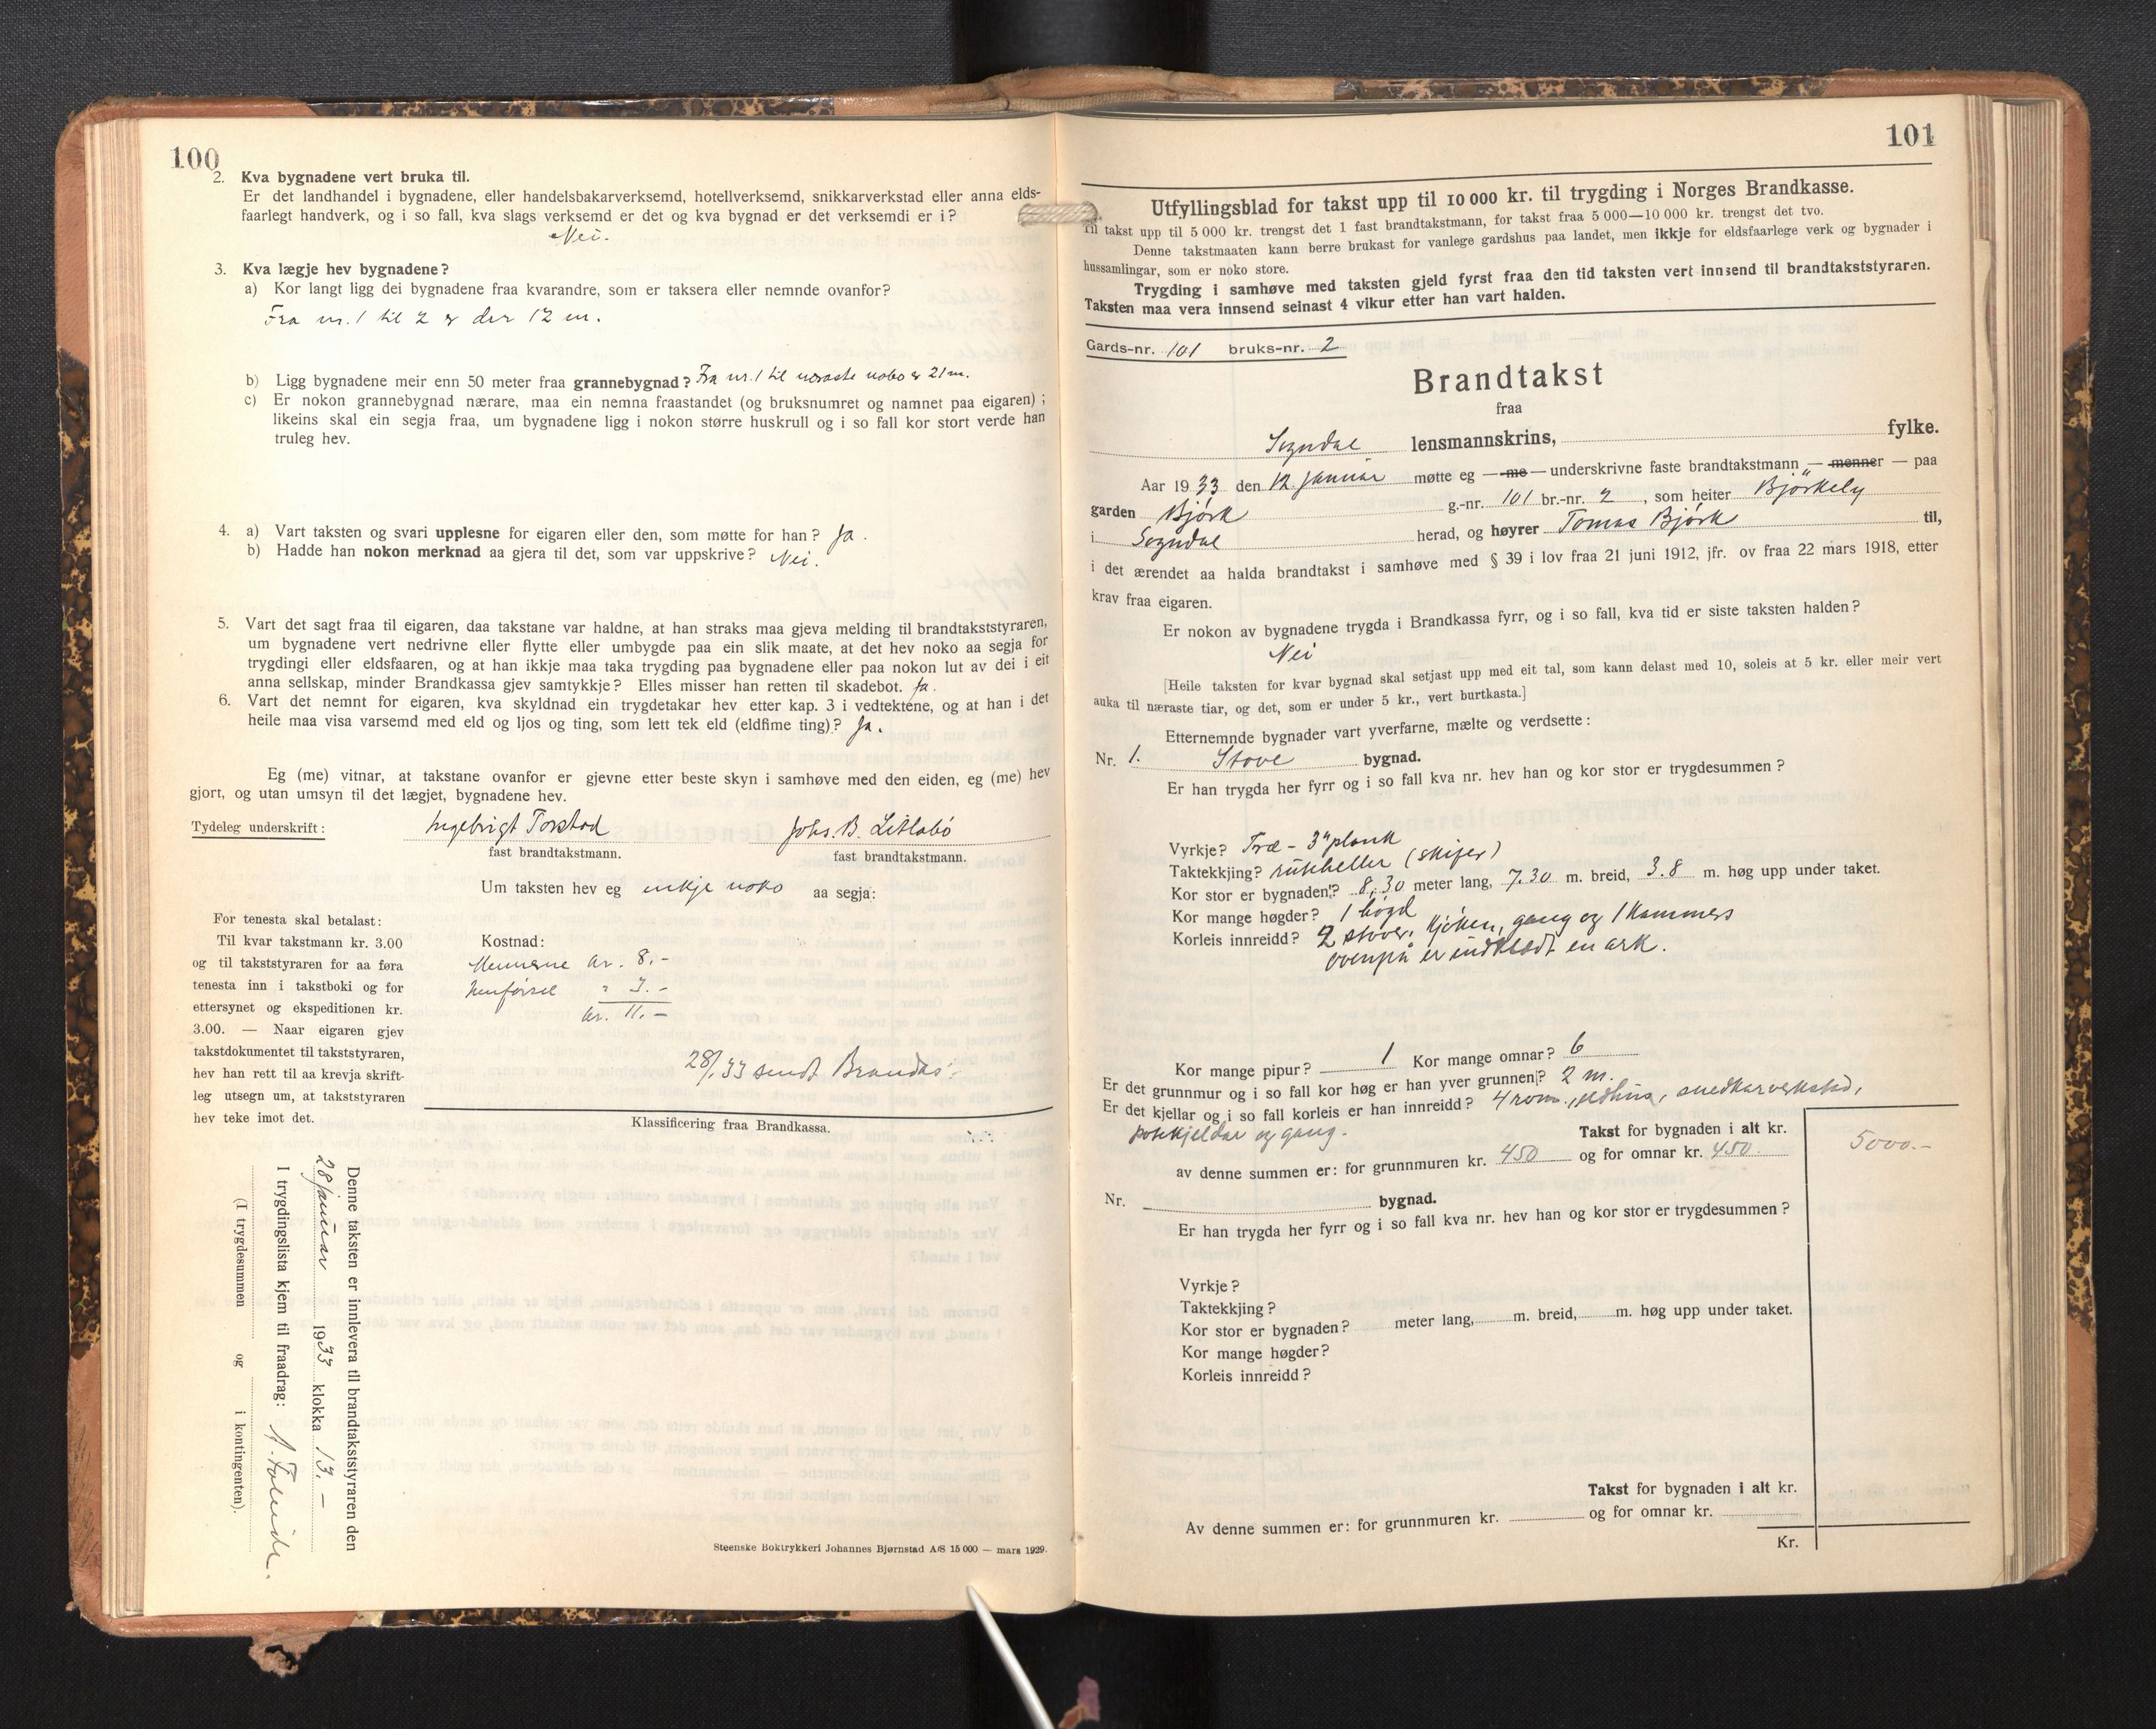 100
2. Kva bygnadene vert bruka til.
Er det landhandel i bygnadene, eller handelsbakarverksemd, hotellverksemd, snikkarverkstad eller anna elds-
faarlegt handverk, og i so fall, kva slags verksemd er det og kva bygnad er det verksemdi er i?
Nei.
3. Kva lægje hev bygnadene?
a) Kor langt ligg dei bygnadene fraa kvarandre, som er taksera eller nemnde ovanfor?
Fra nr. 1 til 2 er der 12 m.
b) Ligg bygnadene meir enn 50 meter fraa grannebygnad? Fra nr. 1 til næraste nabo er 21 m.
c) Er nokon grannebygnad nærare, maa ein nemna fraastandet (og bruksnumret og namnet paa eigaren);
likeins skal ein segja fraa, um bygnadene ligg i nokon større huskrull og i so fall kor stort verde han
truleg hev.
4. a) Vart taksten og svari upplesne for eigaren eller den, som møtte for han? Ja.
b) Hadde han nokon merknad aa gjera til det, som var uppskrive? Nei.
5. Vart det sagt fraa til eigaren, daa takstane var haldne, at han straks maa gjeva melding til brandtakststyraren,
um bygnadene vert nedrivne eller flytte eller umbygde paa ein slik maate, at det hev noko aa segja for
trygdingi eller eldsfaaren, og at han ikkje maa taka trygding paa bygnadene eller paa nokon lut av dei i eit
anna sellskap, minder Brandkassa gjev samtykkje? Elles misser han retten til skadebot. Ja.
6. Vart det nemnt for eigaren, kva skyldnad ein trygdetakar hev etter kap. 3 i vedtektene, og at han i det
heile maa visa varsemd med eld og ljos og ting, som lett tek eld (eldfime ting)? Ja.
Eg (me) vitnar, at takstane ovanfor er gjevne etter beste skyn i samhøve med den eiden, eg (me) hev
gjort, og utan umsyn til det lægjet, bygnadene hev.
Tydeleg underskrift: Ingebrigt Torstad Johs. B. Litlabø
fast brandtakstmann. fast brandtakstmann.
Um taksten hev eg inkje noko aa segja:
For tenesta skal betalast:
Til kvar takstmann kr. 3.00
og til takststyraren for aa føra
tenesta inn i takstboki og for
ettersynet og ekspeditionen kr.
3.00. — Naar eigaren gjev
takstdokumentet til takststyraren,
hev han rett til aa krevja skrift-
leg utsegn um, at takststyraren
hev teke imot det.
Kostnad:
Mennene kr. 8.-
Innførsel " 3.-
kr. 11.-
28/1 33 sendt Brandks.
Klassificering fraa Brandkassa.
Denne taksten er innlevera til brandtakststyraren den
28 januar 1933 klokka 13.-
I trygdingslista kjem til fraadrag:
(I trygdesummen og i kontingenten).
Steenske Boktrykkeri Johannes Bjørnstad A/S 15 000 — mars 1929.
101
Utfyllingsblad for takst upp til 10 000 kr. til trygding i Norges Brandkasse.
Til takst upp til 5 000 kr. trengst det 1 fast brandtakstmann, for takst fraa 5 000—10 000 kr. trengst det tvo.
Denne takstmaaten kann berre brukast for vanlege gardshus paa landet, men ikkje for eldsfaarlege verk og bygnader i
hussamlingar, som er noko store.
Trygding i samhøve med taksten gjeld fyrst fraa den tid taksten vert innsend til brandtakststyraren.
Taksten maa vera innsend seinast 4 vikur etter han vart halden.
Gards-nr. 101 bruks-nr. 2
Brandtakst
fraa
Sogndal lensmannskrins, fylke.
Aar 1933 den 12 Januar møtte eg — me — underskrivne faste brandtakstmann — menner — paa
garden Bjørk g.-nr. 101 br.-nr. 2, som heiter Bjørkely
i Sogndal herad, og høyrer Tomas Bjørk til,
i det ærendet aa halda brandtakst i samhøve med § 39 i lov fraa 21 juni 1912, jfr. ov fraa 22 mars 1918, etter
krav fraa eigaren.
Er nokon av bygnadene trygda i Brandkassa fyrr, og i so fall, kva tid er siste taksten halden?
Nei
[Heile taksten for kvar bygnad skal setjast upp med eit tal, som kann delast med 10, soleis at 5 kr. eller meir vert
auka til næraste tiar, og det, som er under 5 kr., vert burtkasta.]
Etternemnde bygnader vart yverfarne, mælte og verdsette:
Nr. 1. Stove bygnad.
Er han trygda her fyrr og i so fall kva nr. hev han og kor stor er trygdesummen?
Vyrkje? Træ - 3" plank
Taktekkjing? rutheller (skifer)
Kor stor er bygnaden? 8,30 meter lang, 7.30 m. breid, 3.8 m. høg upp under taket.
Kor mange høgder? 1 høgd
Korleis innreidd? 2 stover, kjøken, gang og 1 kammers
ovenpå er indklædt en ark.
Kor mange pipur? 1 Kor mange omnar? 6
Er det grunnmur og i so fall kor høg er han yver grunnen? 2 m.
Er det kjellar og i so fall korleis er han innreidd? 4 rom., vedhus, snedkarverkstad,
potetkjeldar og gang.
Takst for bygnaden i alt kr. 5000.-
av denne summen er: for grunnmuren kr. 450 og for omnar kr. 450.
Nr. bygnad.
Er han trygda her fyrr og i so fall kva nr. hev han og kor stor er trygdesummen?
Vyrkje?
Taktekkjing?
Kor stor er bygnaden? meter lang, m. breid, m. høg upp under taket.
Kor mange høgder?
Korleis innreidd?
Takst for bygnaden i alt kr.
Av denne summen er: for grunnmuren kr. og for omnar kr.
Kr.